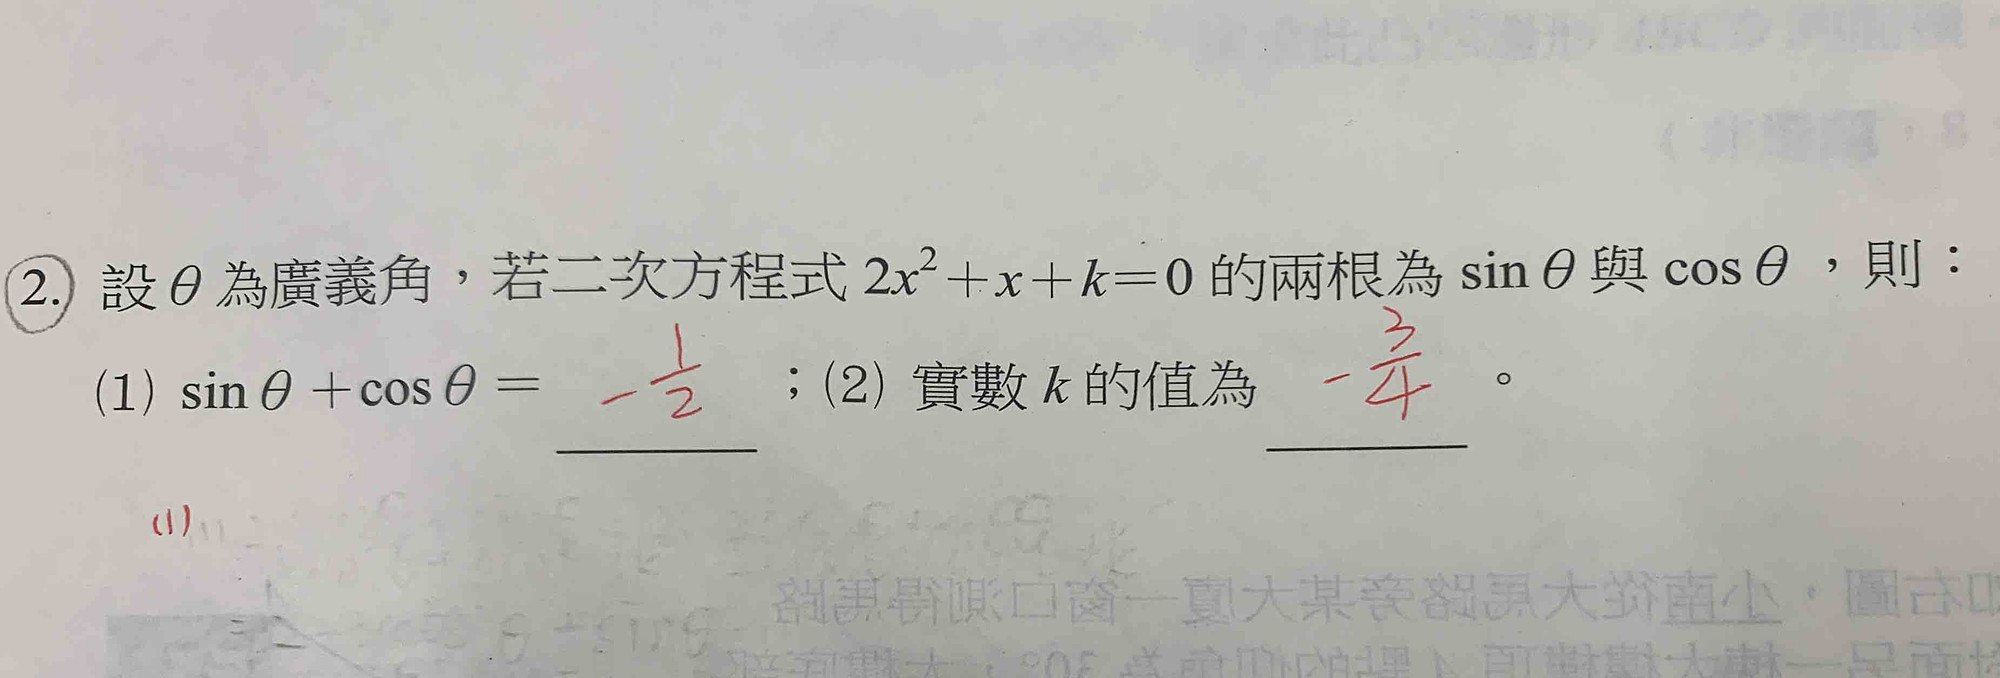 2. 設 θ 為廣義角，若二次方程式 2x²+x+k=0 的兩根為 sin θ 與 cos θ ，則：
(1) sin θ +cos θ = -1/2 ；(2) 實數 k 的值為 -3/4 。
(1)